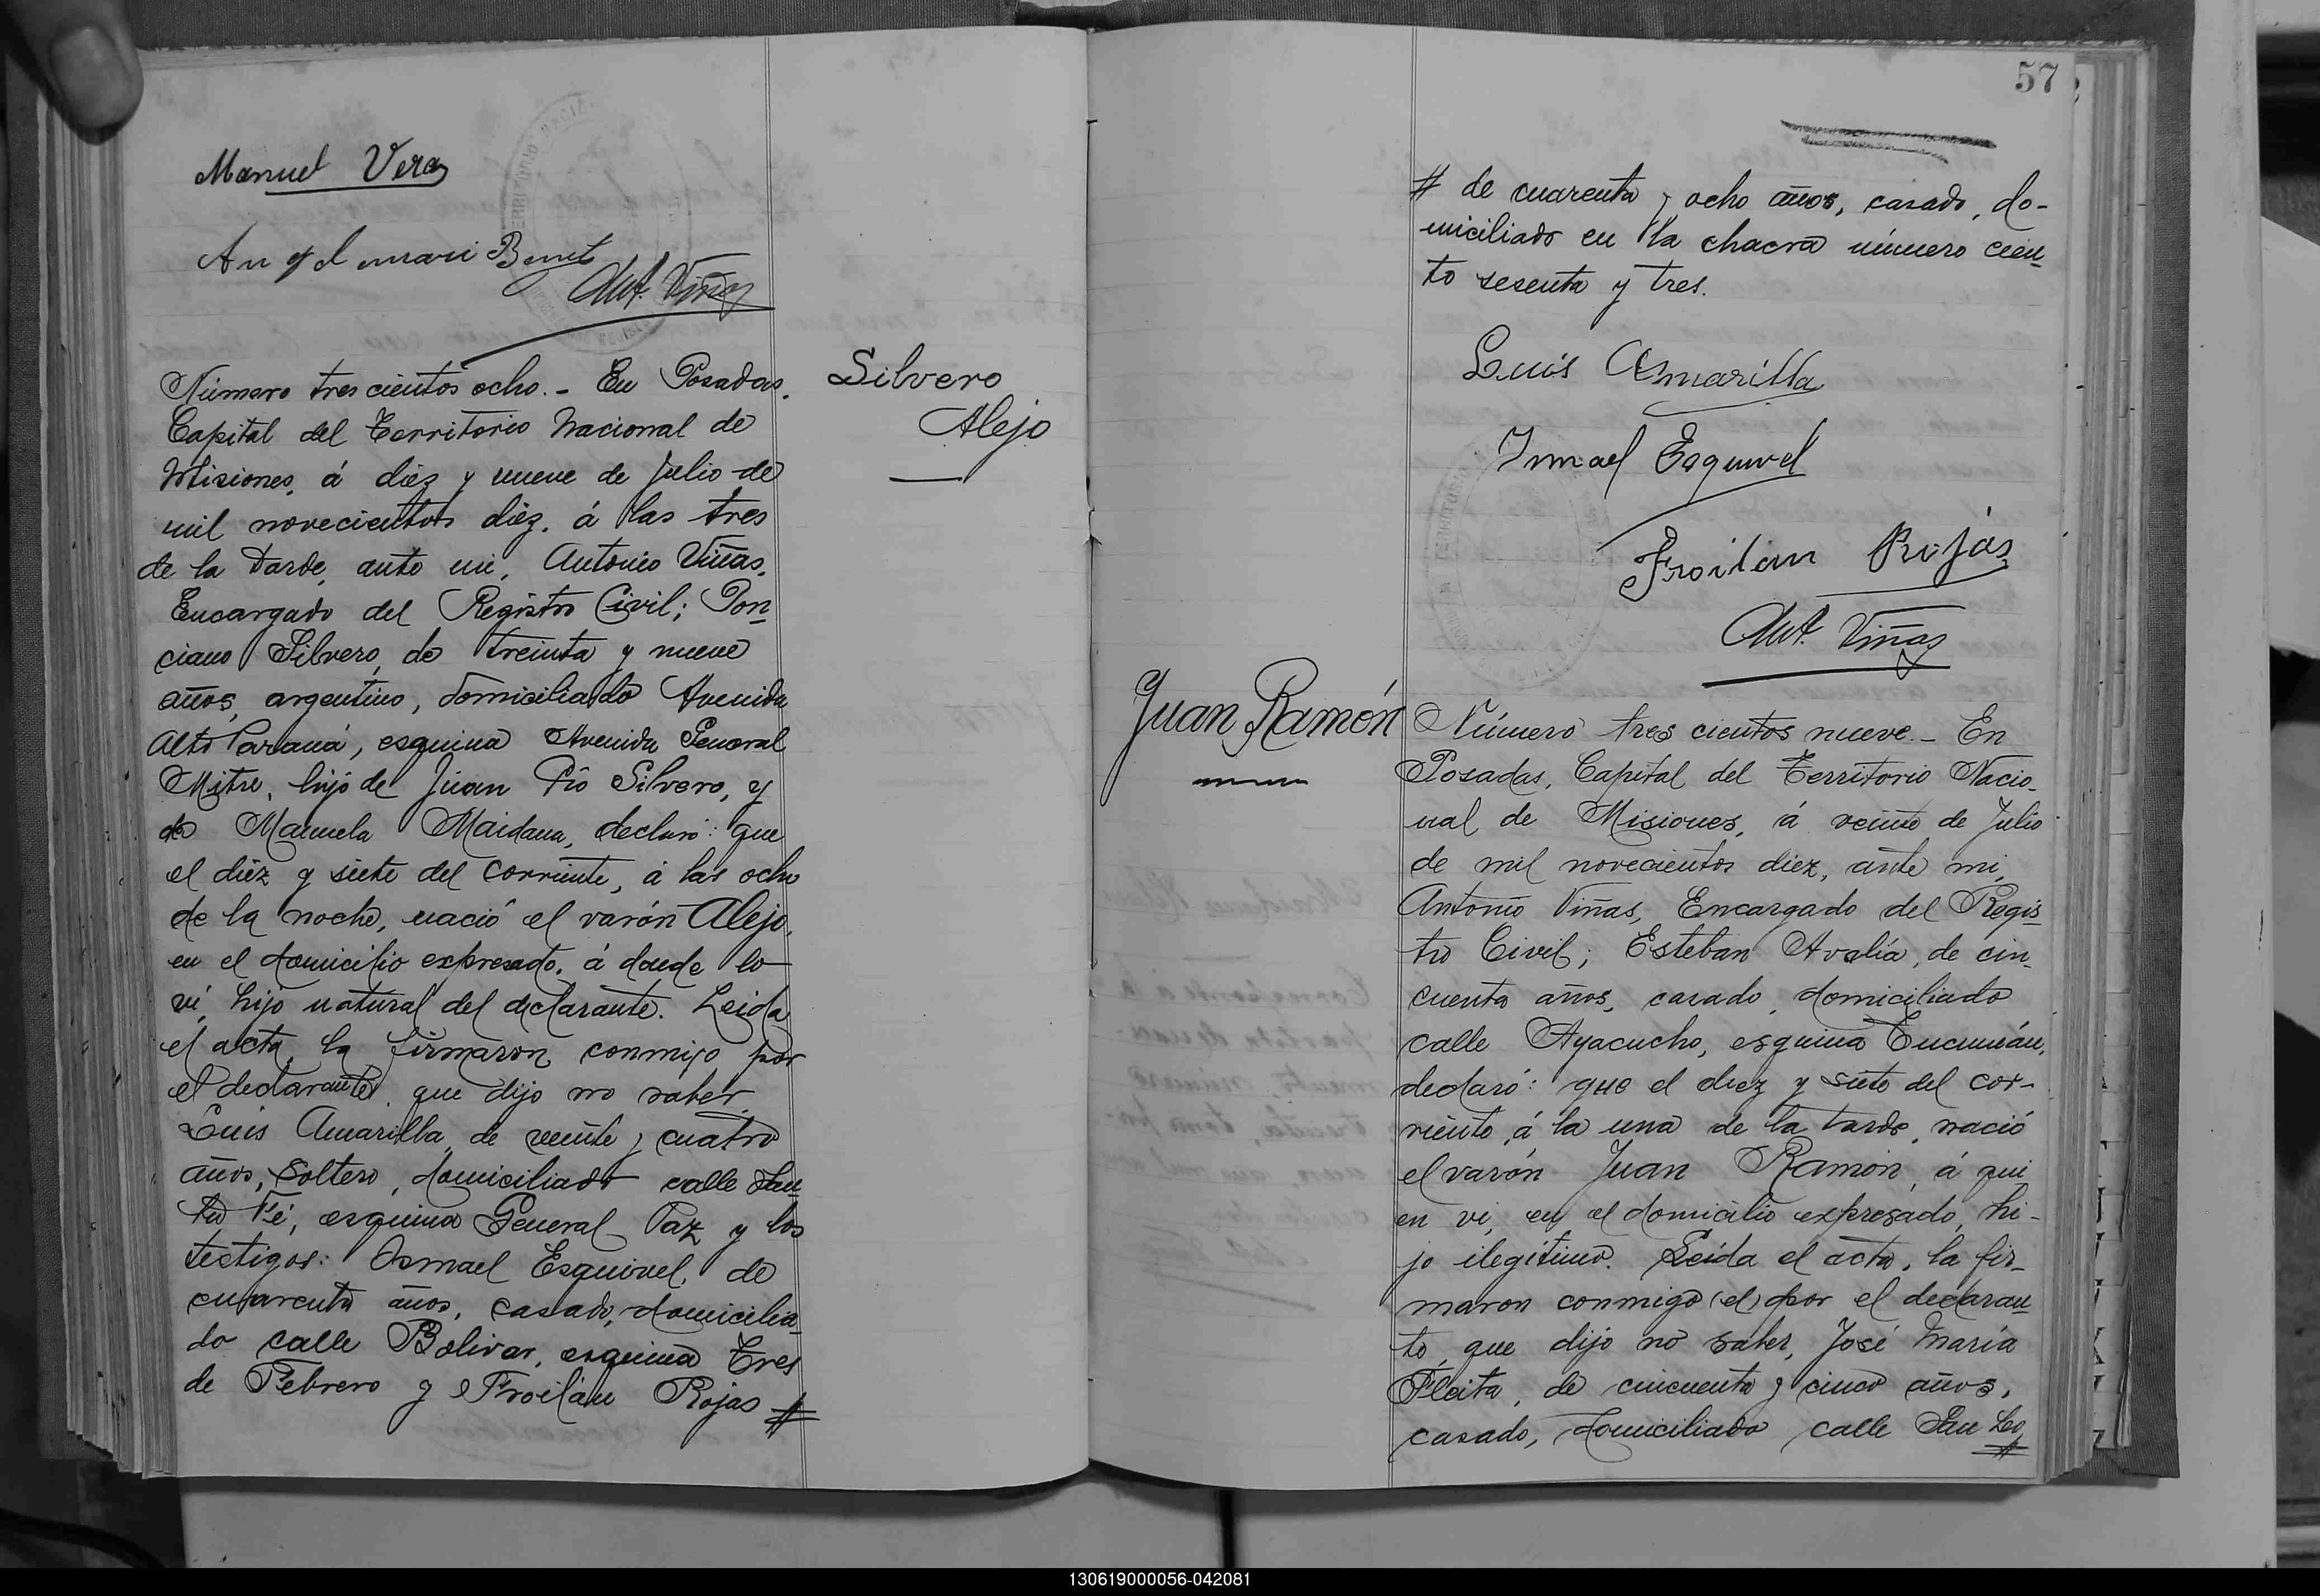 Manuel Vera
Ant. Viñas
Número tres cientos ocho. - En Posadas,
Capital del Territorio Nacional de
Misiones, á diéz y nueve de Julio de
mil novecientos diéz, á las tres
de la tarde, ante mi, Antonio Viñas,
Encargado del Registro Civil; Pon
ciano Silvero, de treinta y nueve
años, argentino, domiciliado Avenida
Alto Paraná, esquina Avenida General
Mitre, hijo de Juan Pío Silvero, y
de Manuela Maidana, declaró: que
el diéz y siete del corriente, á las ocho
de la noche, nació el varón Alejo,
en el domicilio expresado, á donde lo
ví, hijo natural del declarante. Leida
el acta, la firmaron conmigo por
el declarante, que dijo no saber
Luis Amarilla, de veinte y cuatro
años, soltero, domiciliado calle San
ta Fé, esquina General Paz y los
testigos: Ismael Esquivel, de
cuarenta años, casado, domicilia
do calle Bolivar, esquina Tres
de Febrero y Froilán Rojas #
Silvero
Alejo
57
# de cuarenta y ocho años, casado, do-
miciliado en la chacra número cien
to sesenta y tres.
Luis Amarilla
Ismael Esquivel
Froilan Rojas
Ant. Viñas
Juan Ramón
Número tres cientos nueve. - En
Posadas, Capital del Territorio Nacio-
nal de Misiones, á veinte de Julio
de mil novecientos diez, ante mi,
Antonio Viñas, Encargado del Regis
tro Civil; Esteban Avalía, de cin-
cuenta años, casado, domiciliado
calle Ayacucho, esquina Tucumán,
declaró: que el diez y siete del cor-
riente, á la una de la tarde, nació
el varón Juan Ramón, á qui
en ví, en el domicilio expresado, hi-
jo ilegítimo. Leida el acta, la fir-
maron conmigo (el) por el declaran
te, que dijo no saber, José María
Fleita, de cincuenta y cinco años,
casado, domiciliado calle San Lo
#
130619000056-042081